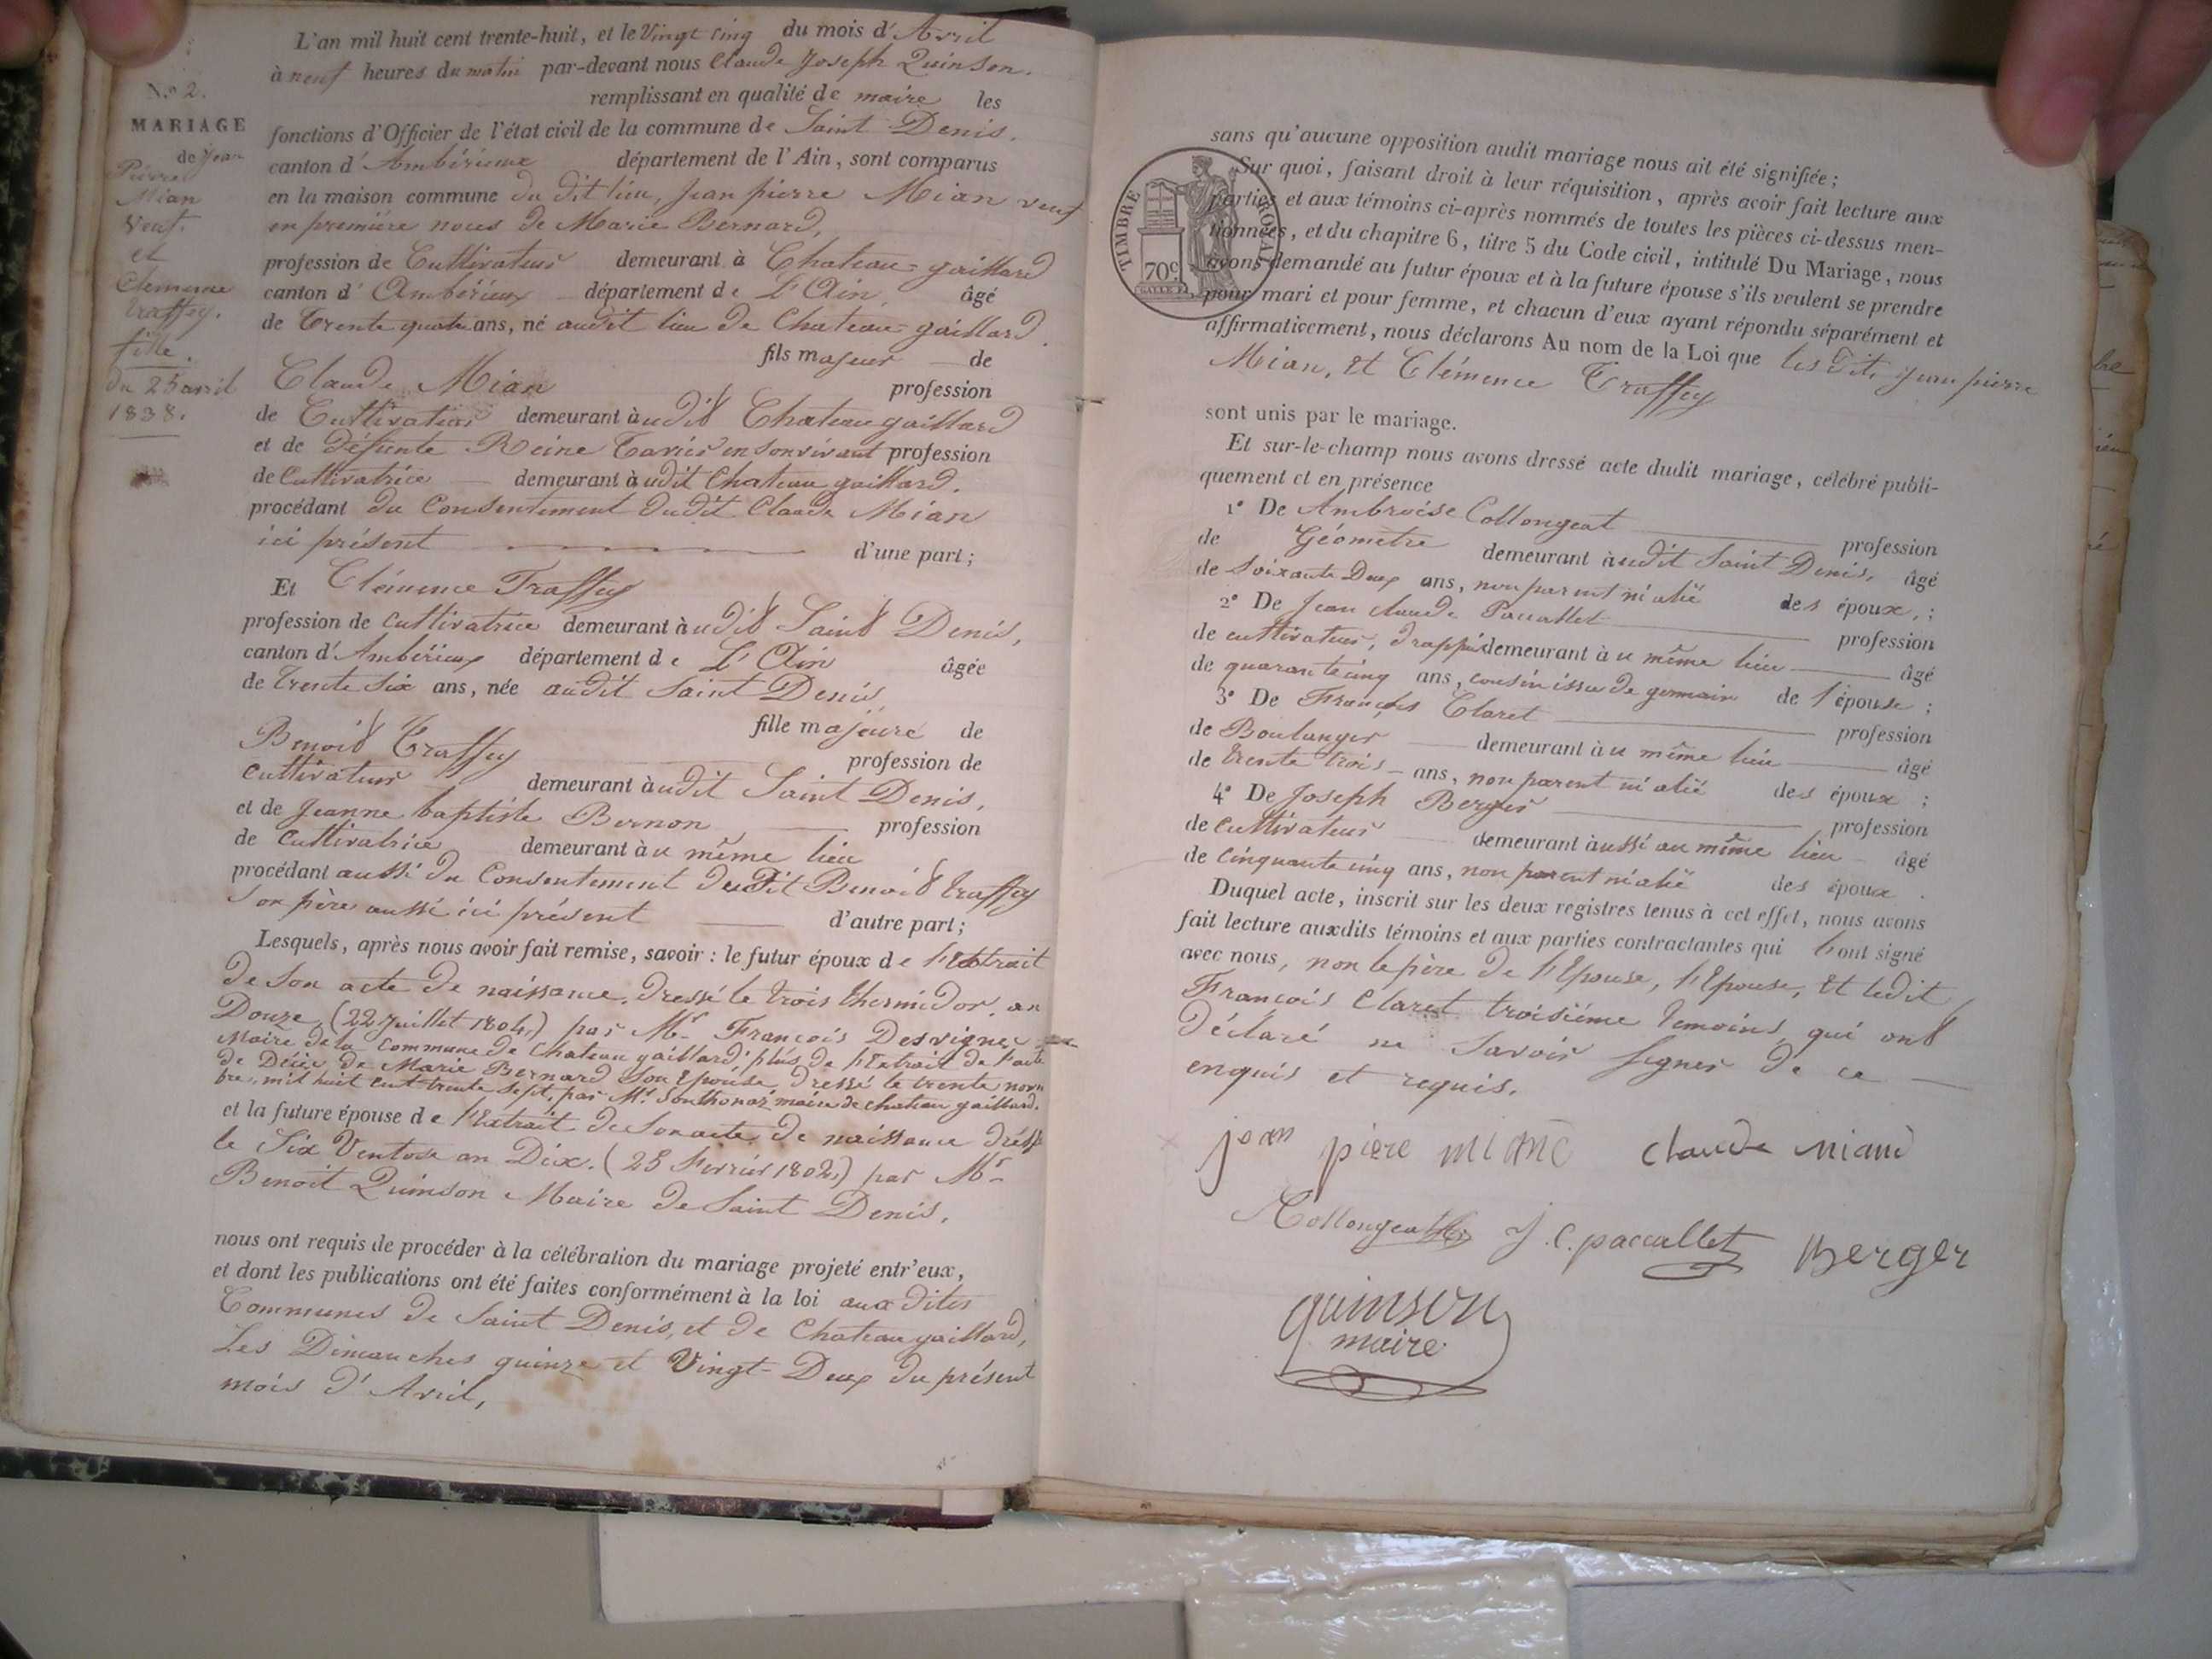 L'an mil huit cent trente-huit, et le Vingt cinq du mois d'Avril
à neuf heures du matin par-devant nous Claude Joseph Quinson.
remplissant en qualité de maire les
fonctions d'Officier de l'état civil de la commune de Saint Denis.
canton d'Ambérieux département de l'Ain, sont comparus
en la maison commune du dit lieu, Jean pierre Mian veuf
en première noces de Marie Bernard,
profession de Cultivateur demeurant à Chateau-gaillard
canton d'Ambérieux département de L'Ain, âgé
de trente quatre ans, né audit lieu de Chateau-gaillard.
fils majeur de
Claude Mian profession
de Cultivateur demeurant àudit Chateau gaillard
et de défunte Reine en son vivant profession
de Cultivatrice demeurant àudit Chateau gaillard.
procédant du Consentement dudit Claude Mian
ici présent d'une part;
Et Clémence Traffey
profession de cultivatrice demeurant àudit Saint Denis,
canton d'Ambérieux département de L'Ain âgée
de trente six ans, née audit Saint Denis,
fille majeure de
Benoit Traffey profession de
cultivateur demeurant àudit Saint Denis,
et de Jeanne baptiste Bernon profession
de Cultivatrice demeurant àu même lieu
procédant aussi du Consentement dudit Benoit traffey
son père aussi ici présent d'autre part;
Lesquels, après nous avoir fait remise, savoir : le futur époux de l'Extrait
de Son acte de naissance, dressé le trois thermidor, an
Douze, (22 Juillet 1804,) par Mr François Desvignes
Maire de la Commune de Chateau gaillard; plus de l'Extrait de l'acte
de Décès de Marie Bernard Son Epouse, dressé le trente novem
bre, mil huit cent trente sept, par Mr. Southonaz maire de chateau gaillard.
et la future épouse de l'Extrait de Son acte de naissance dressé
le Six Ventose an Dix. (25 Fevrier 1802,) par Mr
Benoit Quinson Maire de Saint Denis.
nous ont requis de procéder à la célébration du mariage projeté entr'eux,
et dont les publications ont été faites conformément à la loi aux dites
Communes de Saint Denis, et de Chateau gaillard,
Les Dimanches quinze et Vingt-Deux du présent
mois d'Avril,
No 2.
MARIAGE
de Jean
Pierre
Mian
Veuf.
et
Clemence
traffey.
fille.
du 25 avril
1838.
TIMBRE ROYAL
70c
sans qu'aucune opposition audit mariage nous ait été signifiée;
Sur quoi, faisant droit à leur réquisition, après avoir fait lecture aux
parties et aux témoins ci-après nommés de toutes les pièces ci-dessus men-
tionnées, et du chapitre 6, titre 5 du Code civil, intitulé Du Mariage, nous
avons demandé au futur époux et à la future épouse s'ils veulent se prendre
pour mari et pour femme, et chacun d'eux ayant répondu séparément et
affirmativement, nous déclarons Au nom de la Loi que les dits Jean pierre
Mian, Et Clémence Traffey
sont unis par le mariage.
Et sur-le-champ nous avons dressé acte dudit mariage, célébré publi-
quement et en présence
1° De Ambroise Collongeat profession
de Géomètre demeurant àudit Saint Denis, âgé
de Soixante Deux ans, non parent ni alié des époux, ;
2° De Jean claude Pacallet profession
de cultivateur, demeurant àu même lieu âgé
de quarante cinq ans, cousin issu de germain de l'épouse ;
3° De François Claret profession
de Boulanger demeurant àu même lieu âgé
de trente trois ans, non parent ni alié des époux ;
4° De Joseph Berger profession
de cultivateur demeurant àussi au même lieu âgé
de cinquante cinq ans, non parent ni alié des époux.
Duquel acte, inscrit sur les deux registres tenus à cet effet, nous avons
fait lecture auxdits témoins et aux parties contractantes qui l'ont signé
avec nous, non le père de l'Epouse, l'Epouse, Et ledit
François Claret troisième temoins, qui ont
déclaré ne Savoir Signer de ce
enquis et requis.
jean piere miand claude miand
Collongeat J. C. paccallet Berger
quinson
maire